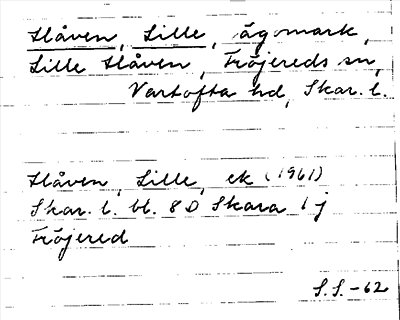 Håven, Lille, ägomark,
Lille Håven, Fröjereds sn,
Vartofta hd, Skar. l.
Håven, Lille, ek (1961)
Skar. l. bl. 8 D Skara 1 j
Fröjered
S.S. -62